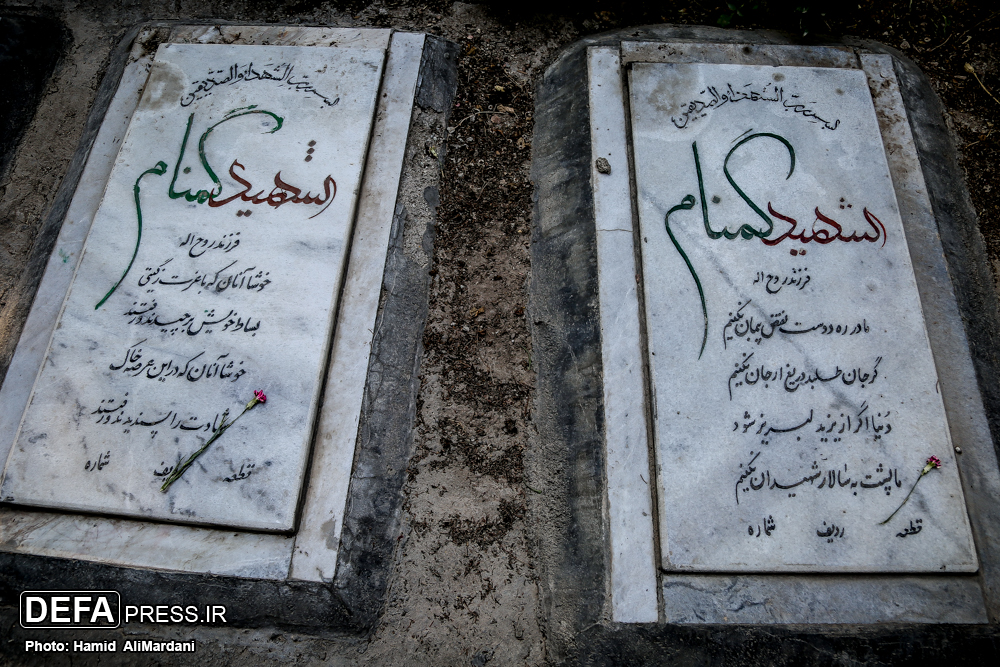 بسم رب الشهداء والصدیقین
الشهید گمنام
فرزند روح اله
خوشا آنان که با عزت ز گیتی
بساط خویش برچیدند و رفتند
خوشا آنان که در این عرصه خاک
شهادت را پسندیدند و رفتند
قطعه ردیف شماره
بسم رب الشهداء والصدیقین
الشهید گمنام
فرزند روح اله
مادر ره دوست نقض پیمان نکنیم
گر جان طلبد دریغ از جان نکنیم
دنیا اگر از یزید لبریز شود
ما پشت به سالار شهیدان نکنیم
قطعه ردیف شماره
DEFAPRESS.IR
Photo: Hamid AliMardani